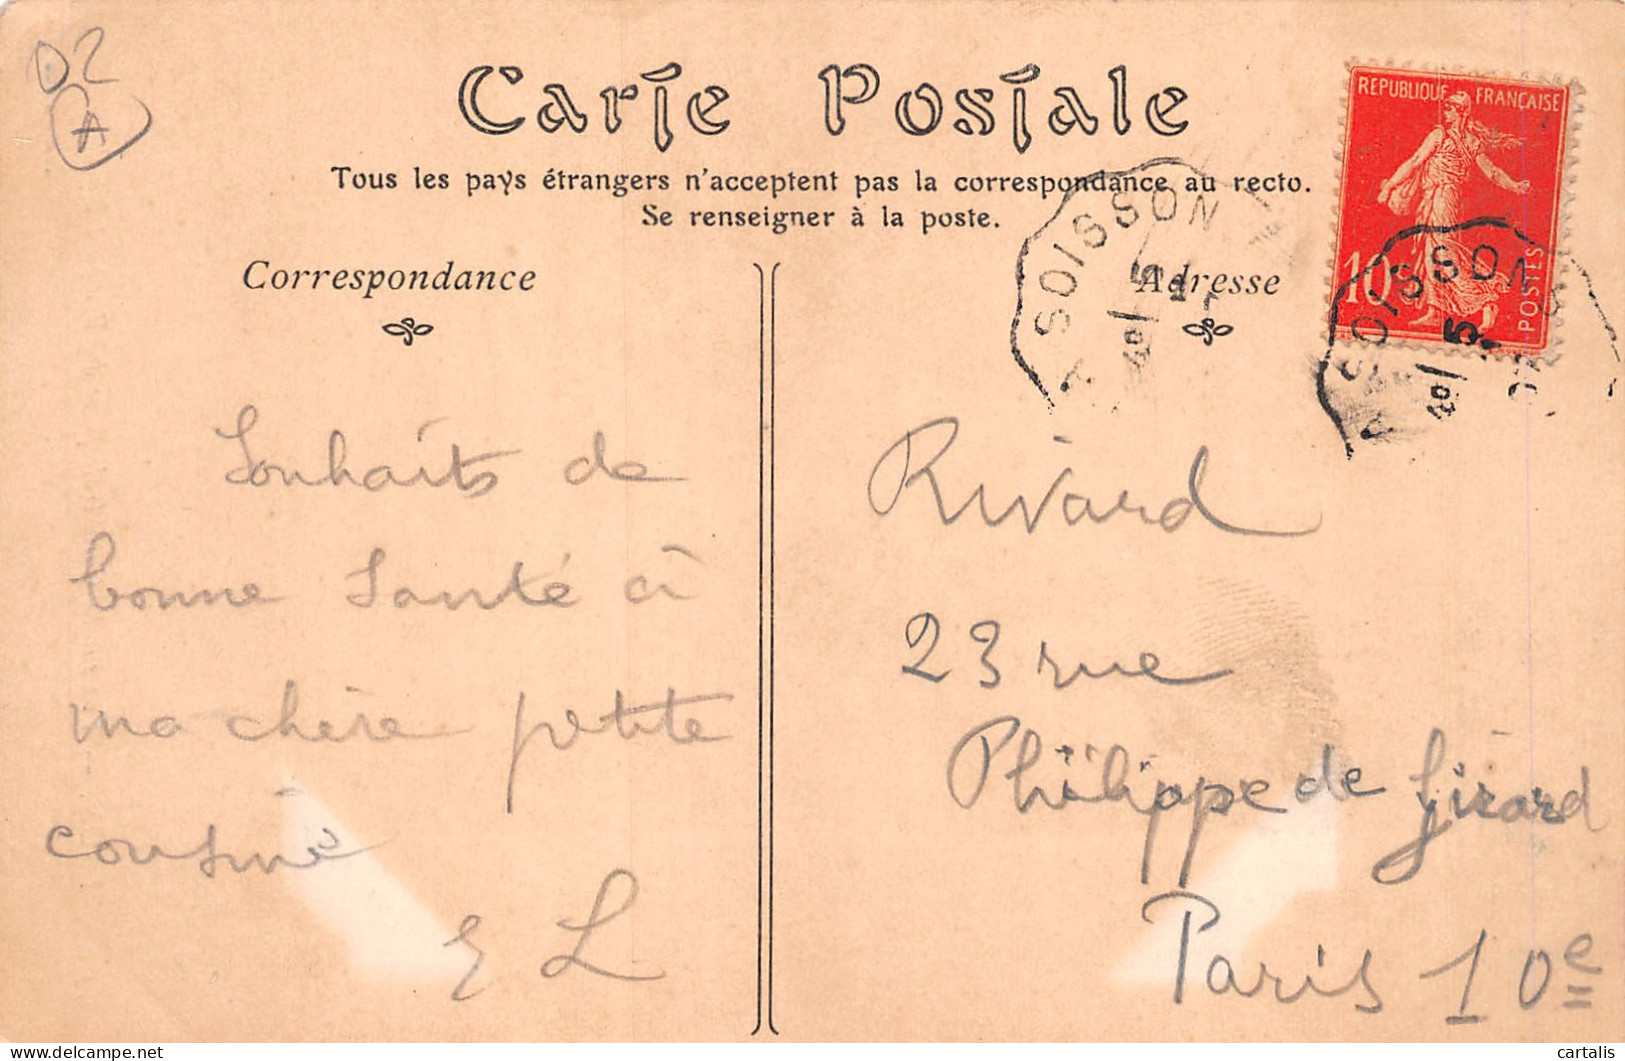 02
A
Carte Postale
Tous les pays étrangers n'acceptent pas la correspondance au recto.
Se renseigner à la poste.
REPUBLIQUE FRANÇAISE
10c
POSTES
SOISSON
SOISSON
Correspondance
Adresse
Souhaits de
bonne santé à
ma chère petite
cousine
E L
Rivard
23 rue
Philippe de Girard
Paris 10e
cartalis